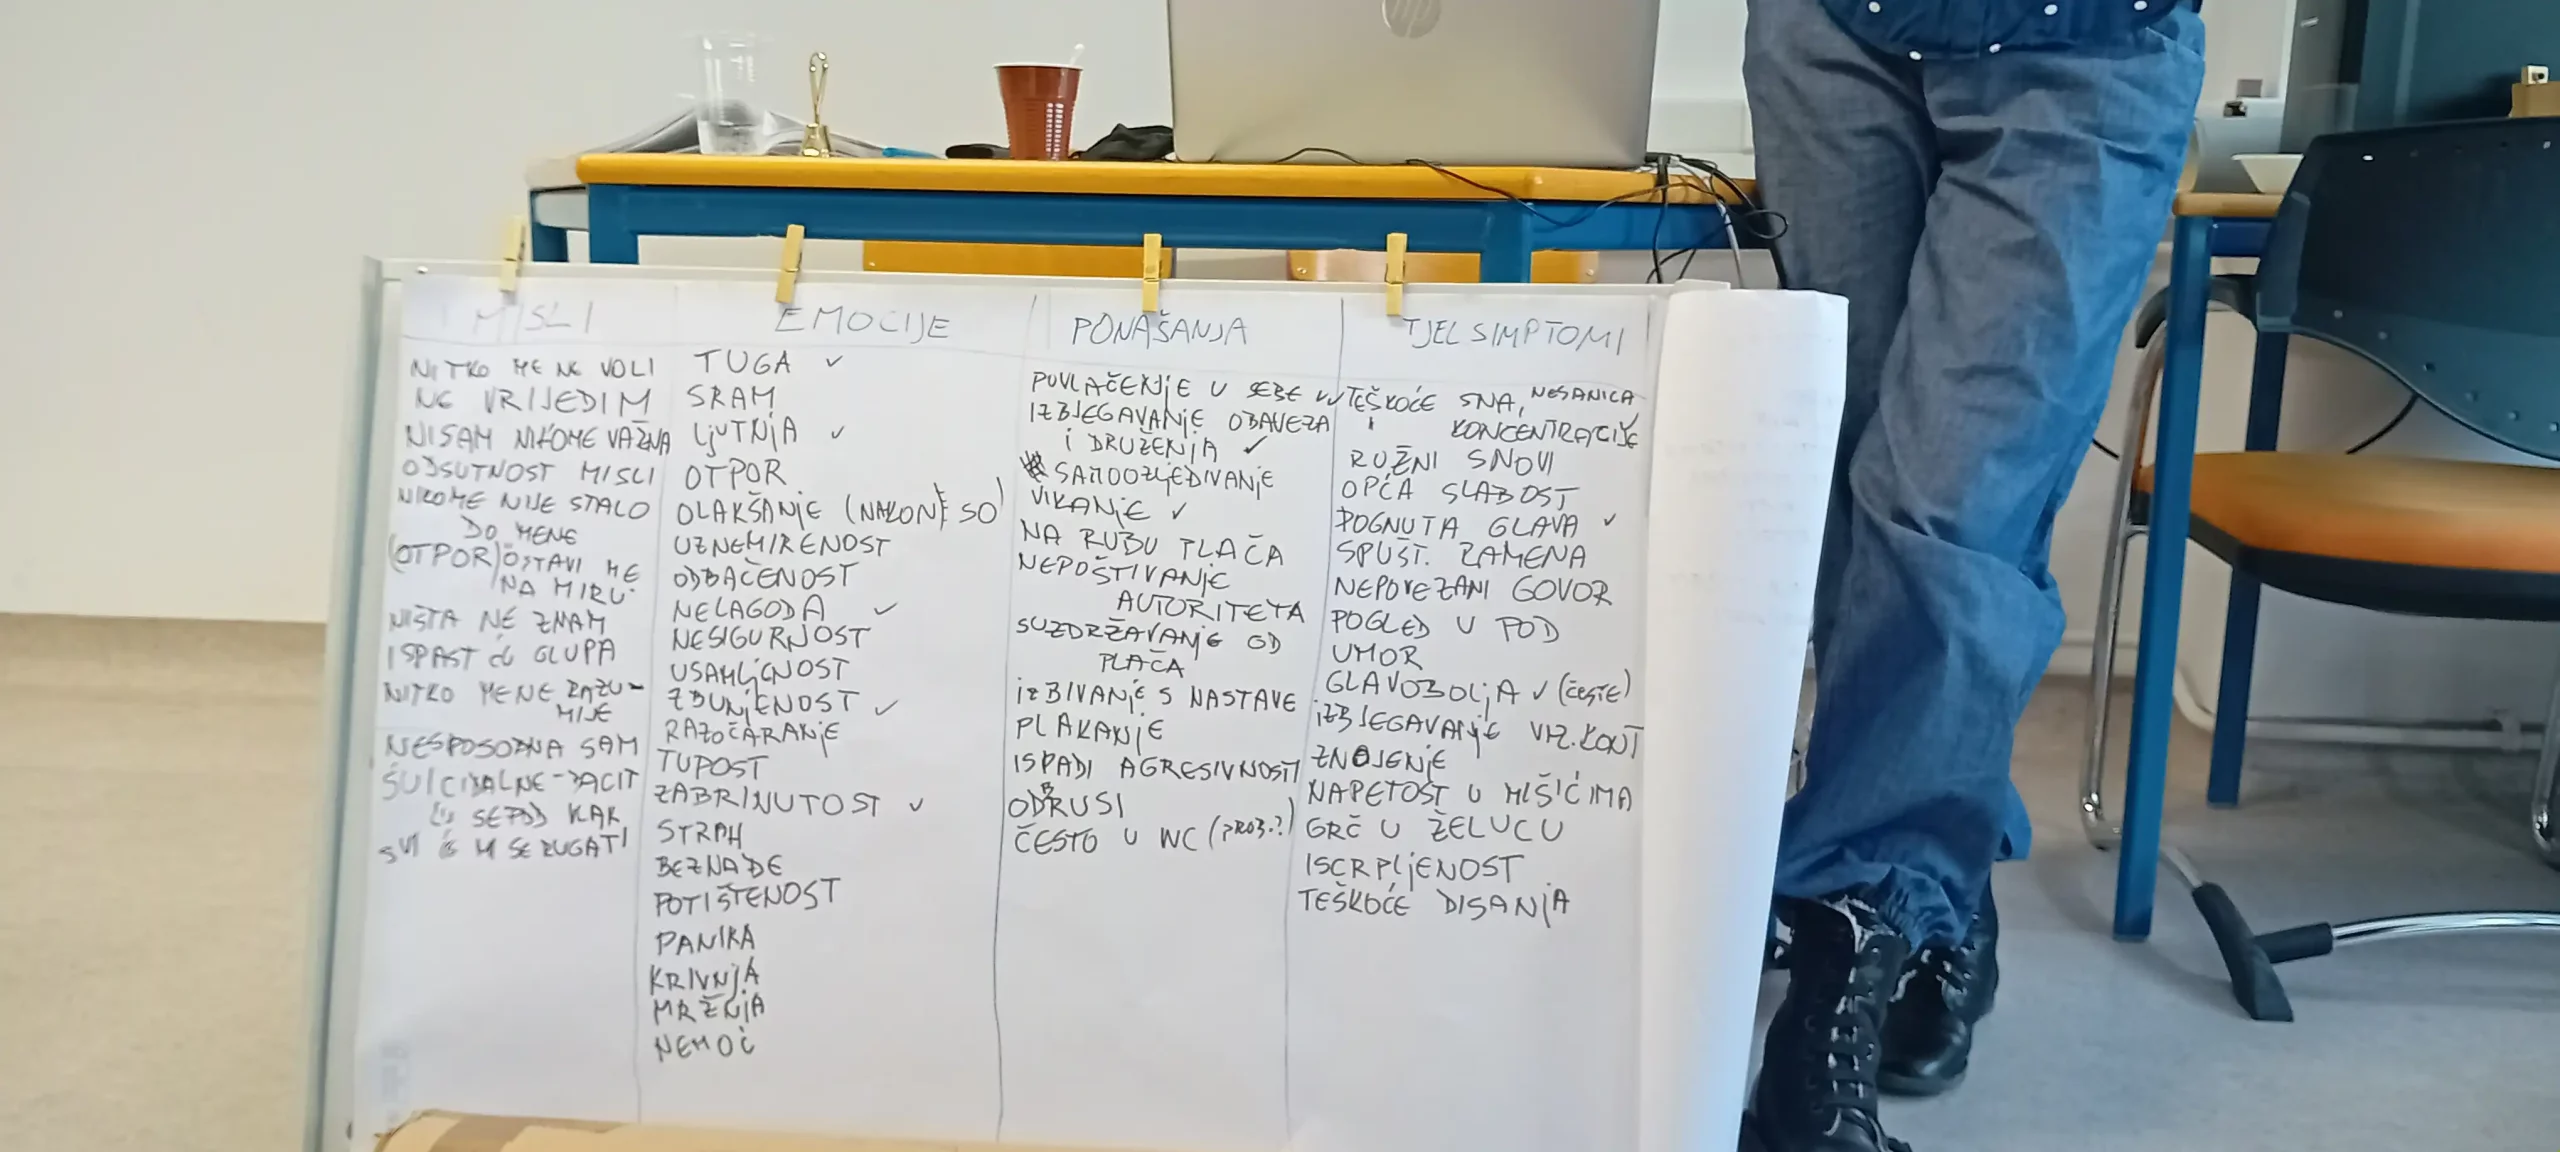 hp
MISLI
NITKO ME NE VOLI
NE VRIJEDIM
NISAM NIKOME VAŽNA
ODSUTNOST MISLI
NIKOME NIJE STALO
DO MENE
(OTPOR) OSTAVI ME
NA MIRU
NIŠTA NE ZNAM
ISPAST ĆU GLUPA
NITKO ME NE RAZU-
MIJE
NESPOSOBNA SAM
SUICIDALNE-BACIT
ĆU SE POD VLAK
SVI ĆE MI SE RUGATI
EMOCIJE
TUGA ✓
SRAM
LjUTNjA ✓
OTPOR
OLAKŠANjE (NAKON) SO
UZNEMIRENOST
ODBAČENOST
NELAGODA ✓
NESIGURNOST
USAMLjENOST
ZBUNjENOST ✓
RAZOČARANjE
TUPOST
ZABRINUTOST ✓
STRAH
BEZNAĐE
POTIŠTENOST
PANIKA
KRIVNjA
MRŽNjA
NEMOĆ
PONAŠANJA
POVLAČENjE U SEBE ✓✓
IZBJEGAVANjE OBAVEZA
I DRUŽENJA ✓
SAMOOZLJEĐIVANjE
VIKANjE ✓
NA RUBU PLAČA
NEPOŠTIVANjE
AUTORITETA
SUZDRŽAVANjE OD
PLAČA
iZBIVANjE S NASTAVE
PLAKANjE
ISPADI AGRESIVNOSTI
OD BRUSI
ČESTO U WC (PROB.?)
TJEL SIMPTOMI
TEŠKOĆE SNA, NESANICA
KONCENTRACIJE
RUŽNI SNOVI
OPĆA SLABOST
POGNUTA GLAVA ✓
SPUŠT. RAMENA
NEPOVEZANI GOVOR
POGLED U POD
UMOR
GLAVOBOLjA ✓ (ČEŠĆE)
iZBJEGAVANjE VIZ. KONT
ZNOJENjE
NAPETOST U MIŠIĆIMA
GRČ U ŽELUCU
ISCRPLjENOST
TEŠKOĆE DISANjA